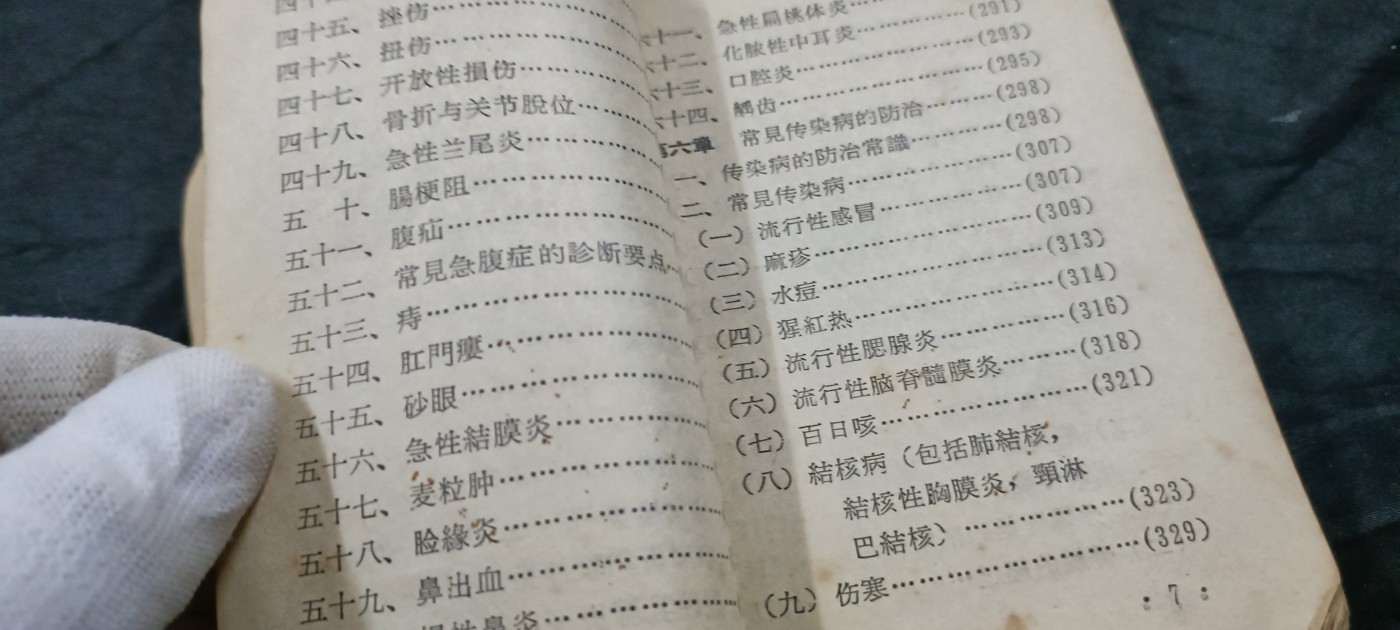 四十五、挫伤…………
四十六、扭伤…………
四十七、开放性損伤…………
四十八、骨折与关节脫位……
四十九、急性兰尾炎…………
五　十、腸梗阻…………
五十一、腹疝…………
五十二、常見急腹症的診断要点…
五十三、痔…………
五十四、肛門瘻…………
五十五、砂眼…………
五十六、急性結膜炎…………
五十七、麦粒肿…………
五十八、睑緣炎…………
五十九、鼻出血…………
性鼻炎…………
十一、急性扁桃体炎…………
十二、化脓性中耳炎…………(291)
十三、口腔炎…………(293)
十四、齲齿…………(295)
第六章 常見传染病的防治………(298)
一、传染病的防治常識…………(298)
二、常見传染病…………(307)
（一）流行性感冒…………(307)
（二）麻疹…………(309)
（三）水痘…………(313)
（四）猩紅热…………(314)
（五）流行性腮腺炎…………(316)
（六）流行性脑脊髓膜炎…………(318)
（七）百日咳…………(321)
（八）結核病（包括肺結核，
結核性胸膜炎，頸淋
巴結核）…………(323)
（九）伤寒…………(329)
：7：